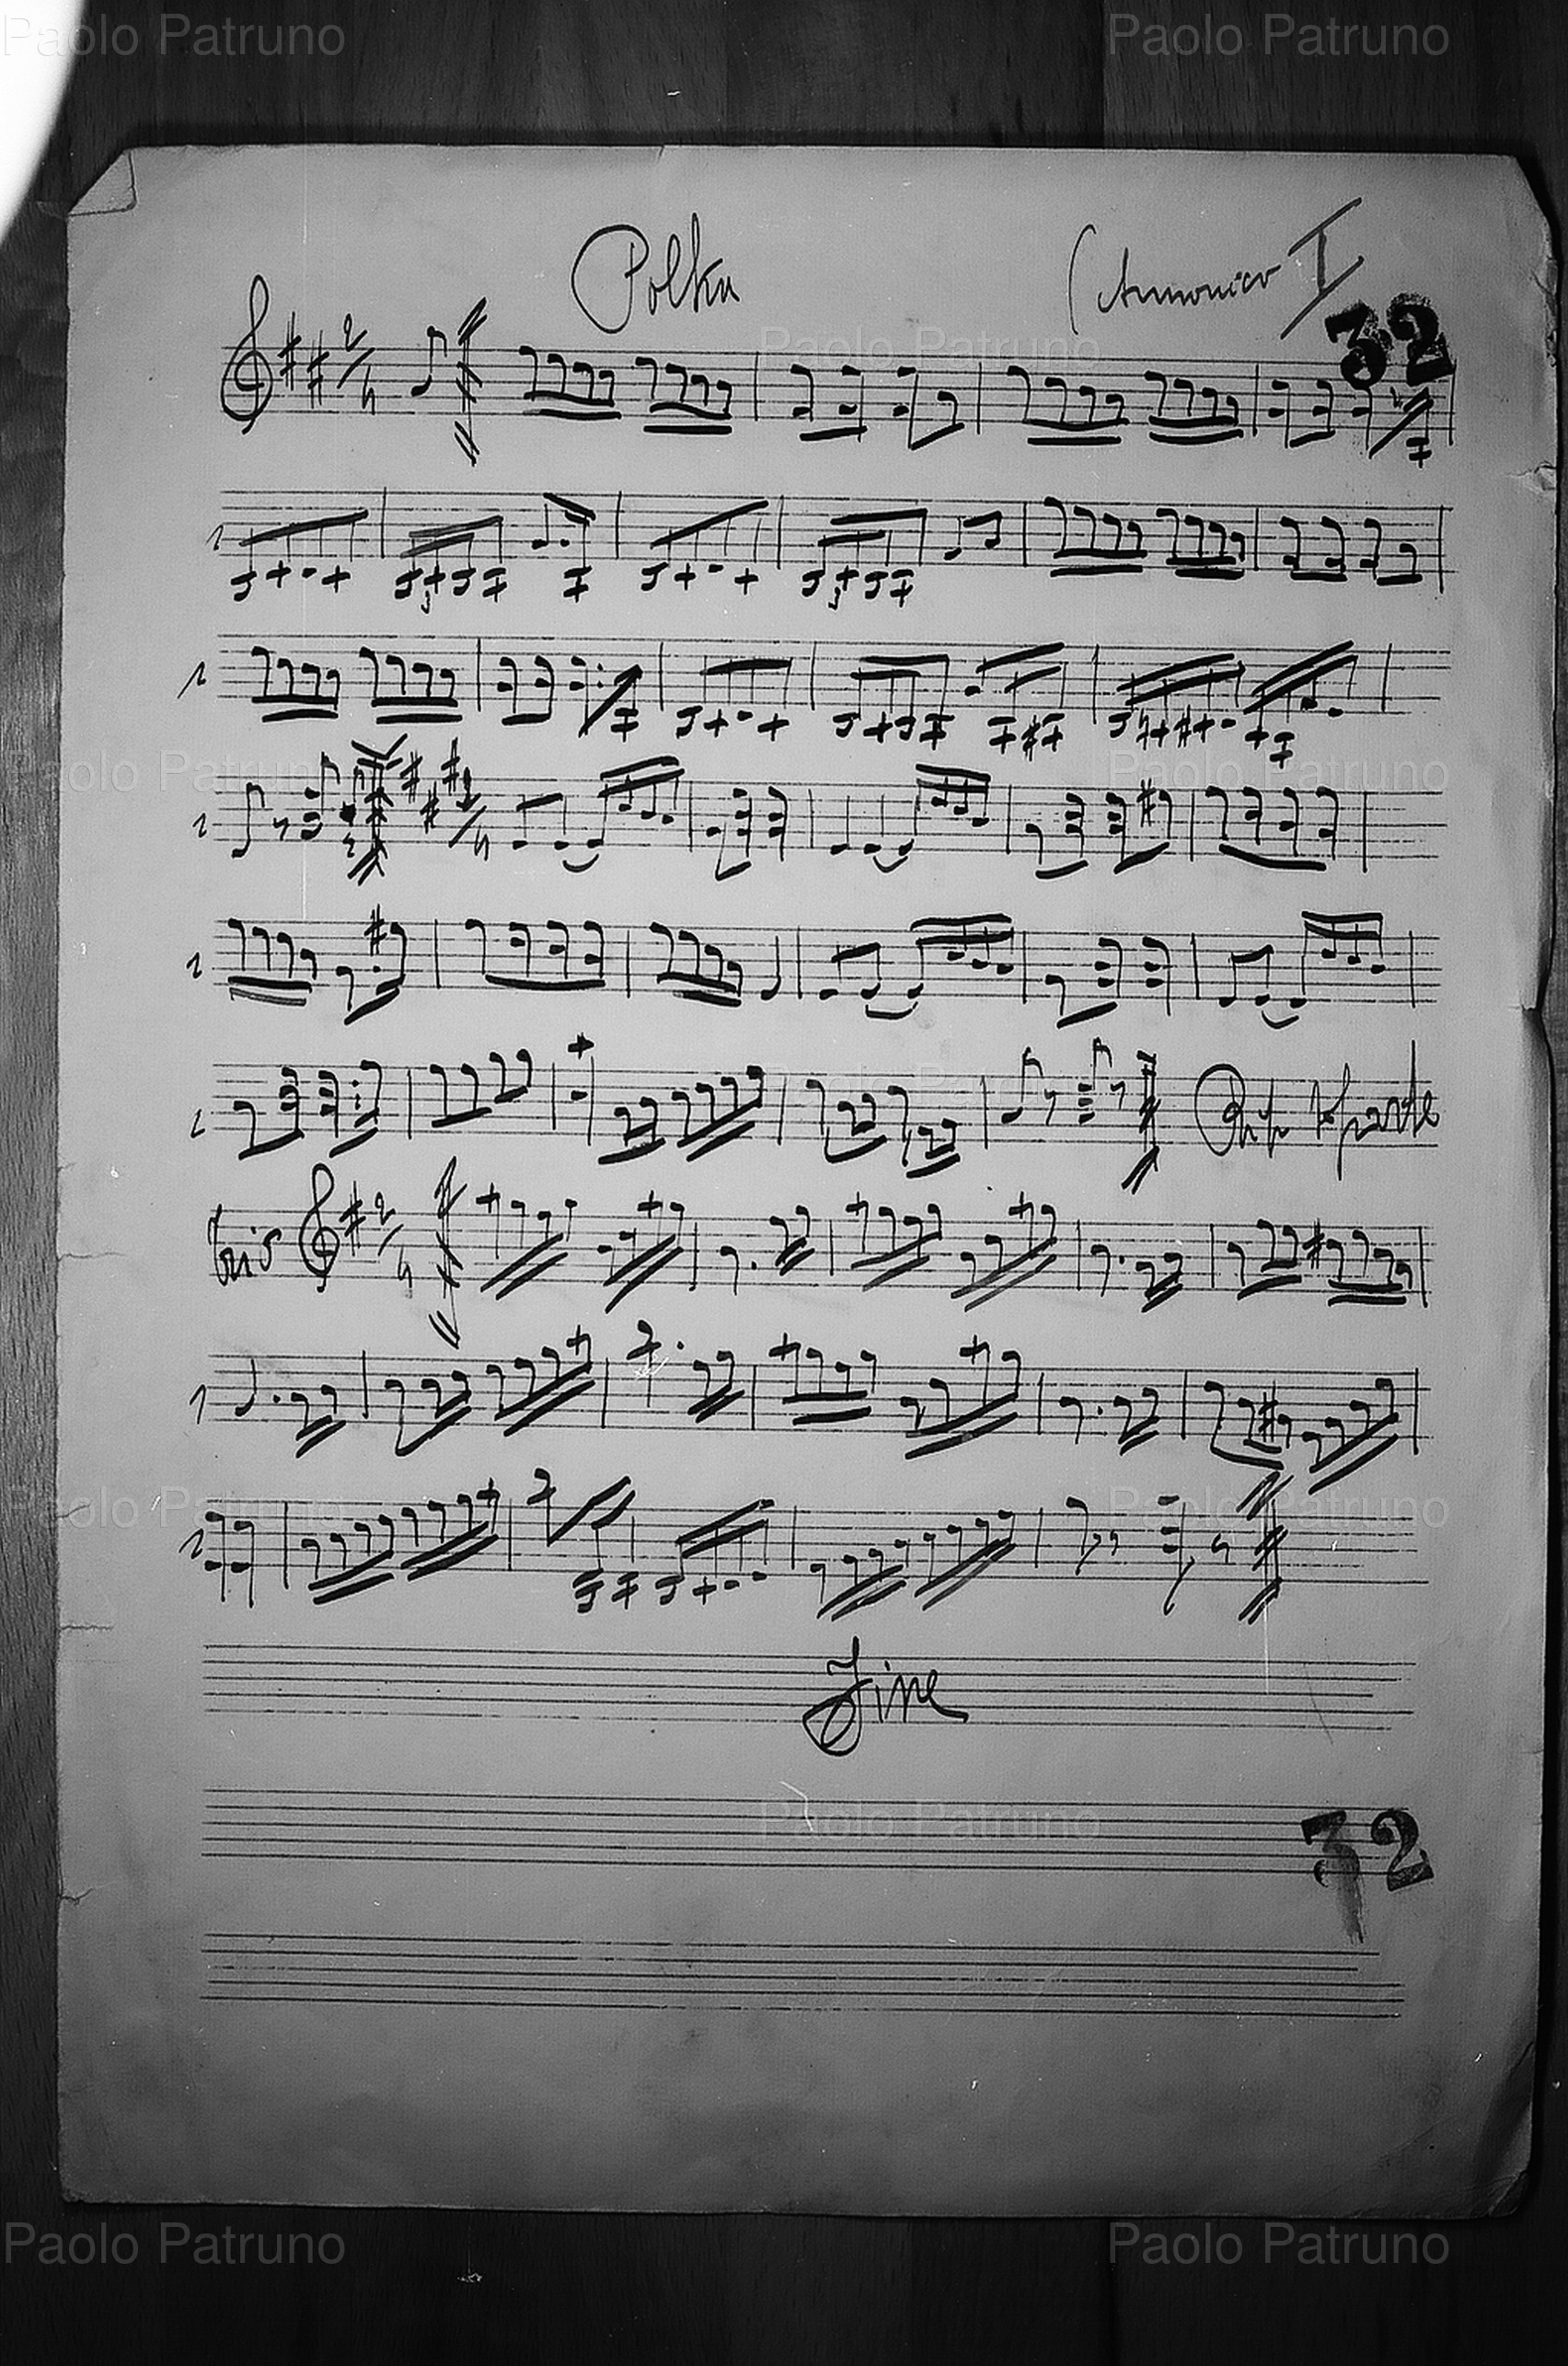 Paolo Patruno Paolo Patruno
Polka
I
32
2/4
Paolo Patruno
Paolo Patruno Paolo Patruno
2/4
Paolo Patruno
parte
bis 2/4
Paolo Patruno Paolo Patruno
Fine
Paolo Patruno
32
Paolo Patruno Paolo Patruno